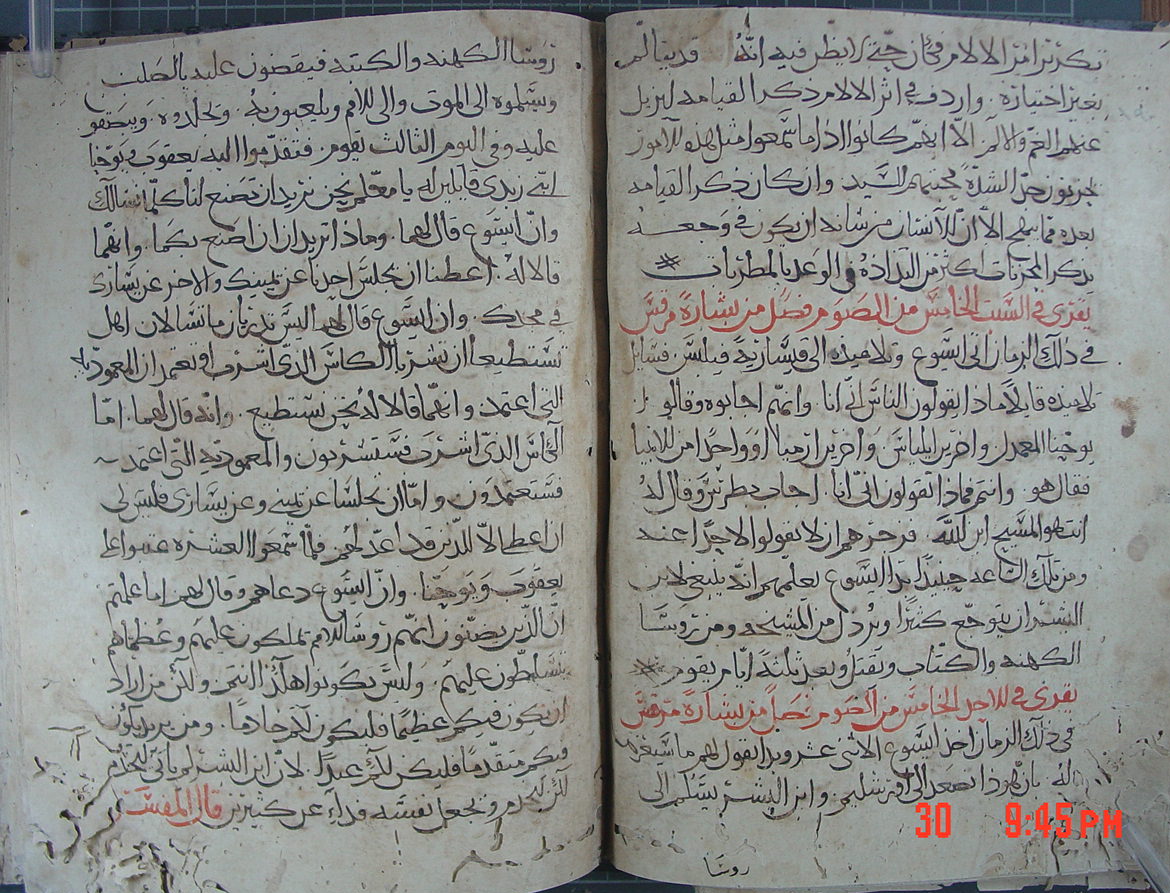 تكرير امر الالام فحال حتى لا يظن فيه انه قد يتالم
بغير اختياره. واردف في اثر الالام ذكر القيامه ليزيل
عنهم الغم والالم الا انهم كانوا اذا ما سمعوا مثل هذه الامور
يحزنون جل الشدة محبتهم للسيد وان كان ذكر القيامه
بعده مما يبهج الا ان للانسان من شانه ان يكون في وجعه
بذكر المحزنات اكثر من اللذاذه في الوعد بالمطربات
يقرى في السبت الخامس من الصوم فصل من بشارة مرقس
في ذلك الزمان اتى ايسوع وتلاميذه الى قيسارية فيلبس فسايل
تلاميذه قايلا ماذا يقولون الناس اني انا وانهم اجابوه وقالوا
يوحنا المعمدان واخرين ايلياس واخرين ارميا او واحدا من الانبيا
فقال هو وانتم فماذا تقولون اني انا. اجاب بطرس وقال له
انت هو المسيح ابن الله. فزجرهم ان لا يقولوا لاحدا عنه
ومن تلك الساعه حينيذا بدا ايسوع يعلمهم انه ينبغي لابن
البشر ان يتوجع كثيرا ويرذل من المشيخه ومن روسا
الكهنه والكتاب ويقتل وبعد ثلثة ايام يقوم
يقرى في الاحد الخامس من الصوم فصلا من بشارة مرقس
في ذلك الزمان اخذ ايسوع الاثنى عشر وبدا يقول لهم ما سيعرض
له بان هوذا نصعد الى اورشليم. وابن البشر يسلم الى
روسا
روسا الكهنه والكتبه فيقضون عليه بالصلب
ويسلموه الى الموت والى الامم ويلعبون به ويجلدوه. ويبصقو
عليه وفي اليوم الثالث يقوم. فتقدموا اليه يعقوب ويوحنا
ابني زبدى قايلين له يا معلم نحن نريد ان تصنع لنا كلما نسالك
وان ايسوع قال لهما. وماذا تريدان ان اصنع بكما. وانهما
قالا له. اعطنا ان يجلس احدنا عن يمينك والاخر عن يسارك
في مجدك. وان ايسوع قال لهما اليس تدريان ما تسالان اهل
تستطيعا ان تشربا الكاس الذي اشرب او تعمدان المعمودية
التي اعتمد. وانهما قالا له نحن نستطيع. وانه قال لهما. اما
الكاس الذي اشرب فستشربون والمعمودية التي اعتمد
فستعتمدون واما ان تجلسا عن يميني وعن يساري فليس لي
ان اعطي الا للذين قد اعد لهم فلما سمعوا العشره غضبوا على
يعقوب ويوحنا. وان ايسوع دعاهم وقال لهم اما علمتم
ان الذين يظنون انهم روسا للامم يملكون عليهم وعظماهم
يتسلطون عليهم. وليس يكونوا هكذا انتم. ولكن من اراد
ان يكون فيكم عظيما فليكون لكم خادما. ومن يريد يكون
فيكم متقدما فليكن لكم عبدا. لان ابن البشر لم ياتي ليخدم
لكن ليخدم ويجعل نفسه فداء عن كثيرين قال المفسر
30 9:45 PM